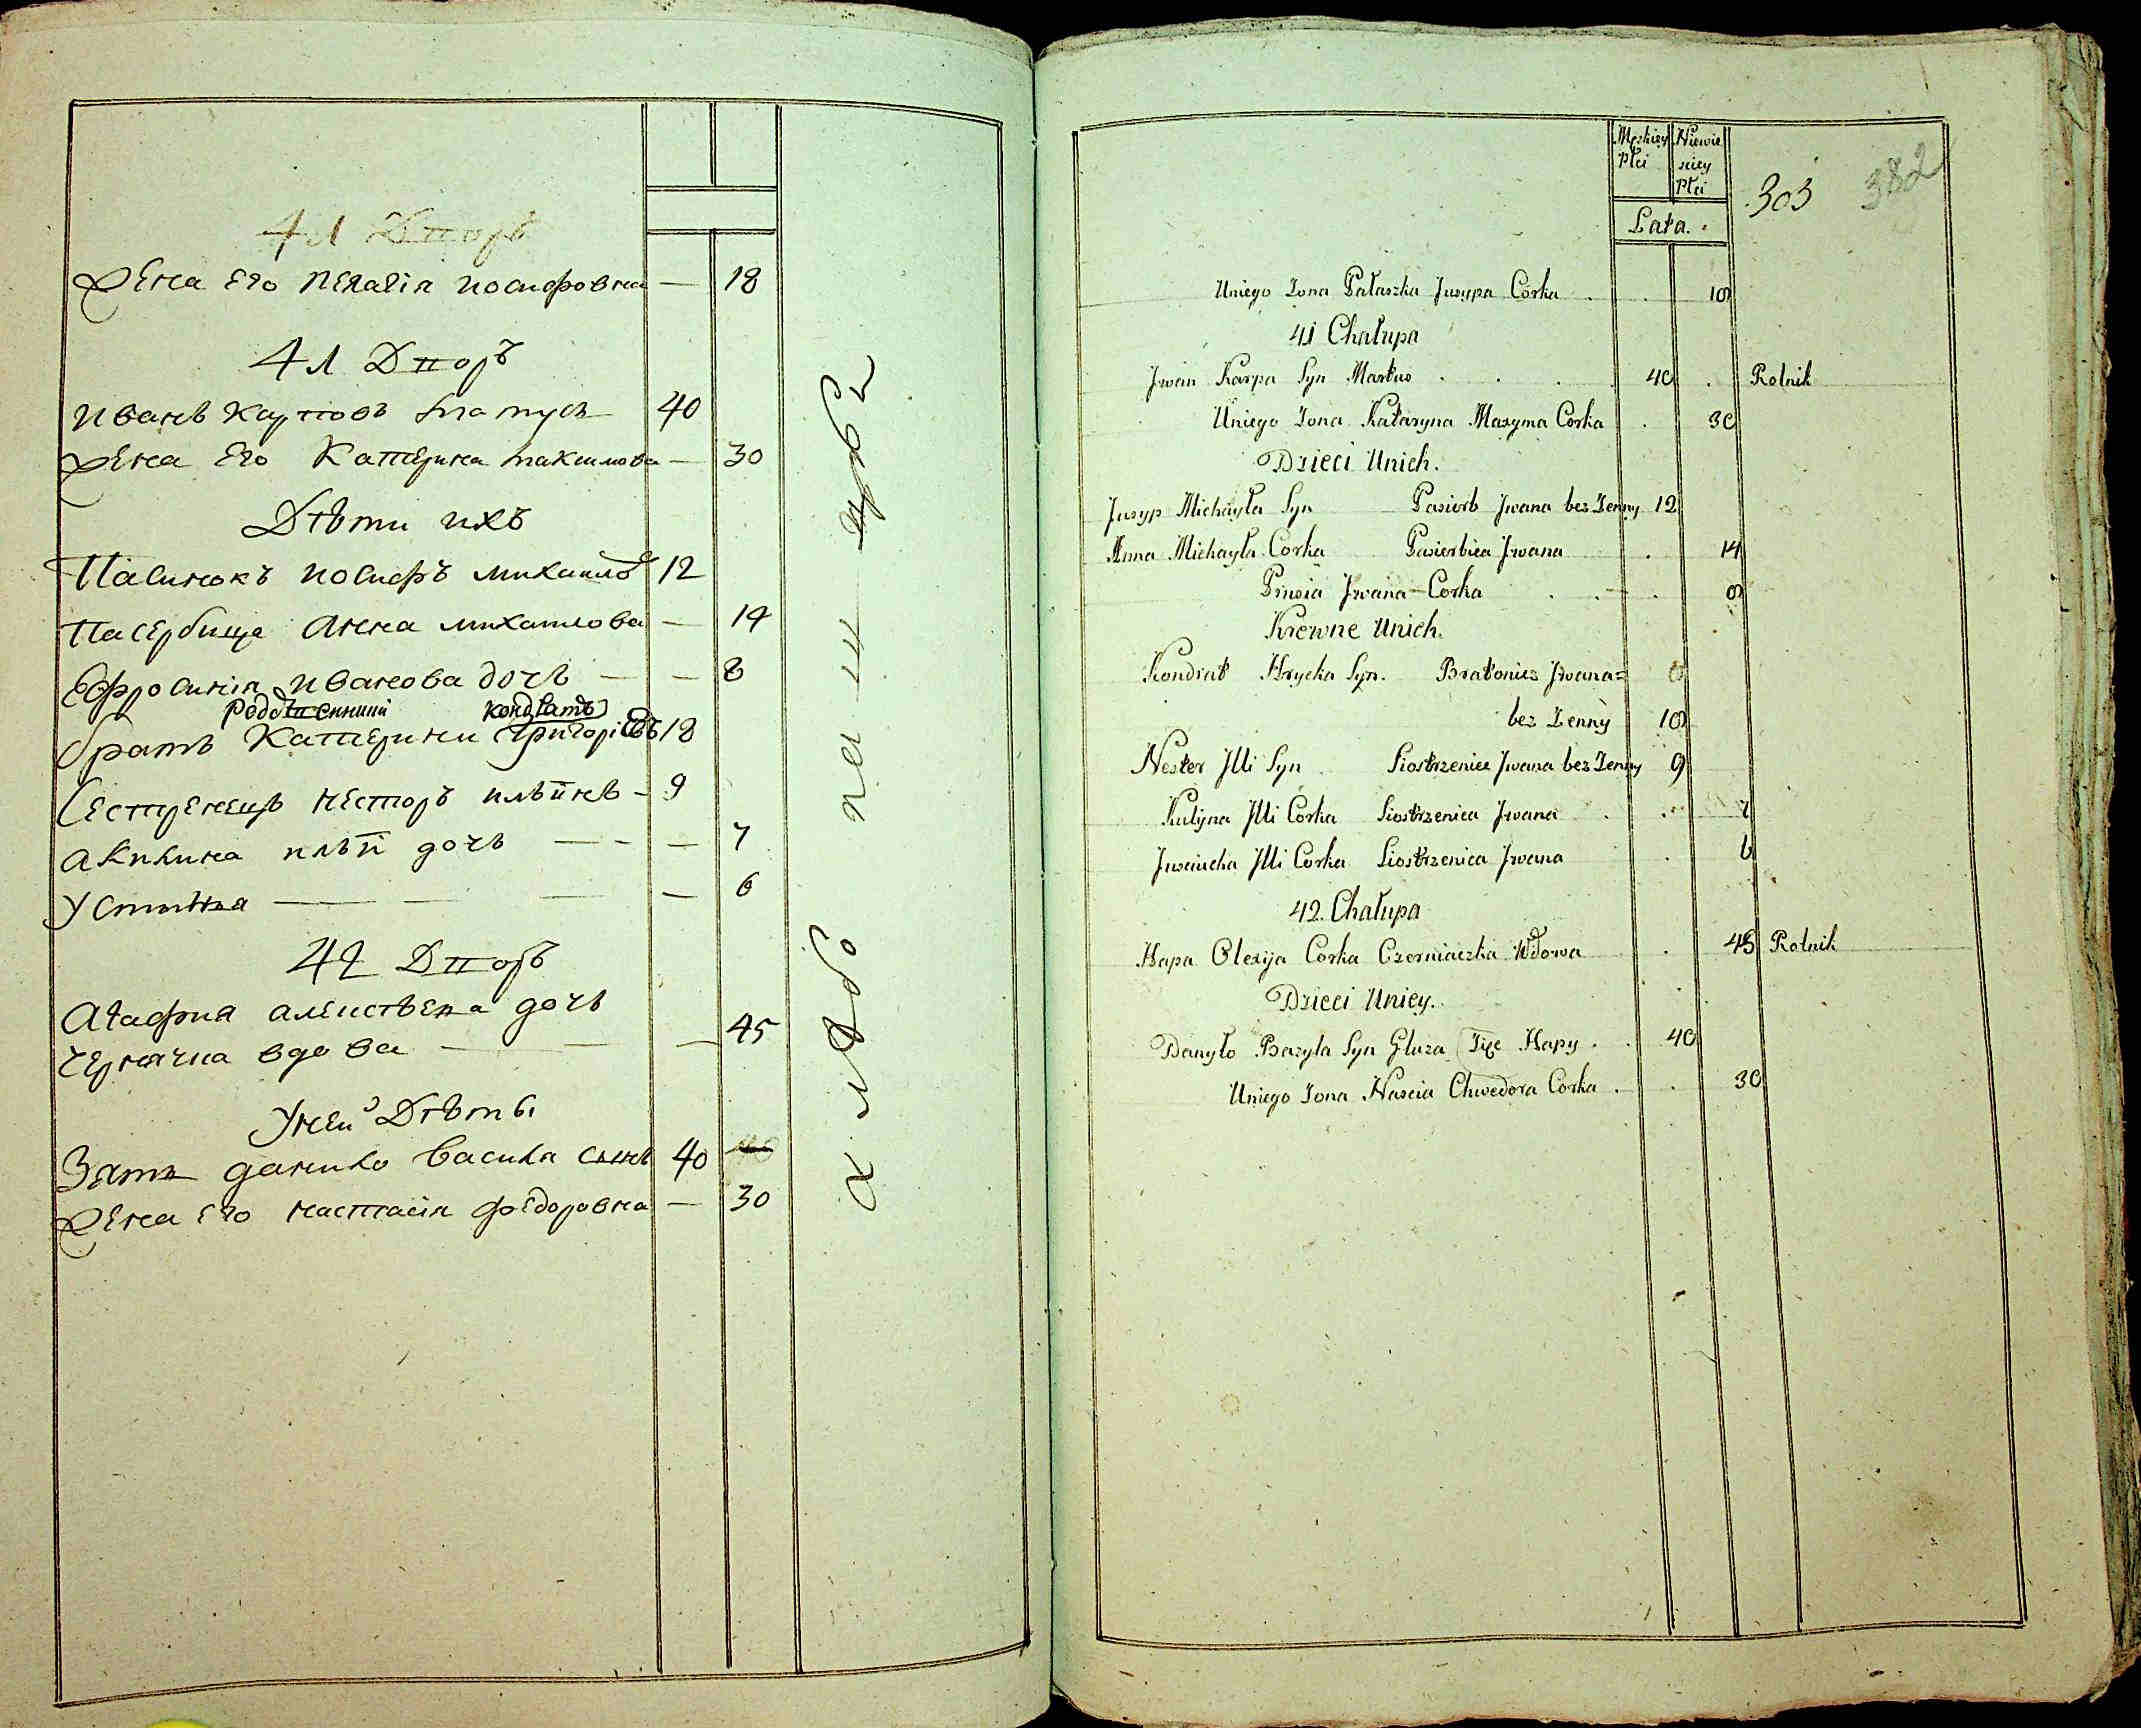 41 Дворъ
Жена Его Пелагія Иосифовна — 18
41 Дворъ
Иванъ Карповъ 40
Жена Его Катерина Максимова — 30
Дѣти ихъ
Пасинокъ Иосифъ Михаиловъ 12
Пасербица Анна Михаилова — 14
Ефросинія Иванова дочь — — 8
Родственний Кондратъ
братъ Катерини Григоріевъ 18
Сестренецъ Несторъ Илѣинъ - 9
Акилина Илѣи дочь — - — 7
Устинка — — — — 6
42 Дворъ
Агафия дочь
вдова — — — 45
У ней Дѣты
Зять данило Василя синъ 40
Жена Его Настасія Федоровна — 30
хлѣбо па ш цы
Męskiey Płci
Niewie sciey Płci
Lata.
303 382
Uniego Żona Pałaszka Jusypa Corka . . 18
41 Chałupa
Jwan Karpa Syn . . . 40 . Rolnik
Uniego Żona Kataryna Maxyma Corka . 30
Dzieci Unich.
Jusyp Michayła Syn Pasierb Jwana bez Żenny 12
Anna Michayła Corka Pasierbica Jwana . 14
Prusia Jwana Corka . . . 8
Krewne Unich.
Kondrat Hrycka Syn. Bratoniec Jwana
bez Żenny 18
Nester Jlli Syn Siostrzeniec Jwana bez Żenny 9
Kulyna Jlli Corka Siostrzenica Jwana . . 7
Jlli Corka Siostrzenica Jwana . 6
42. Chałupa
Hapa Olexija Corka Czerniaczka Wdowa . 45 Rolnik
Dzieci Uniey.
Danyło Bazyla Syn Gluza Zięć Hapy . . 40
Uniego Żona Nascia Chwedora Corka . . 30